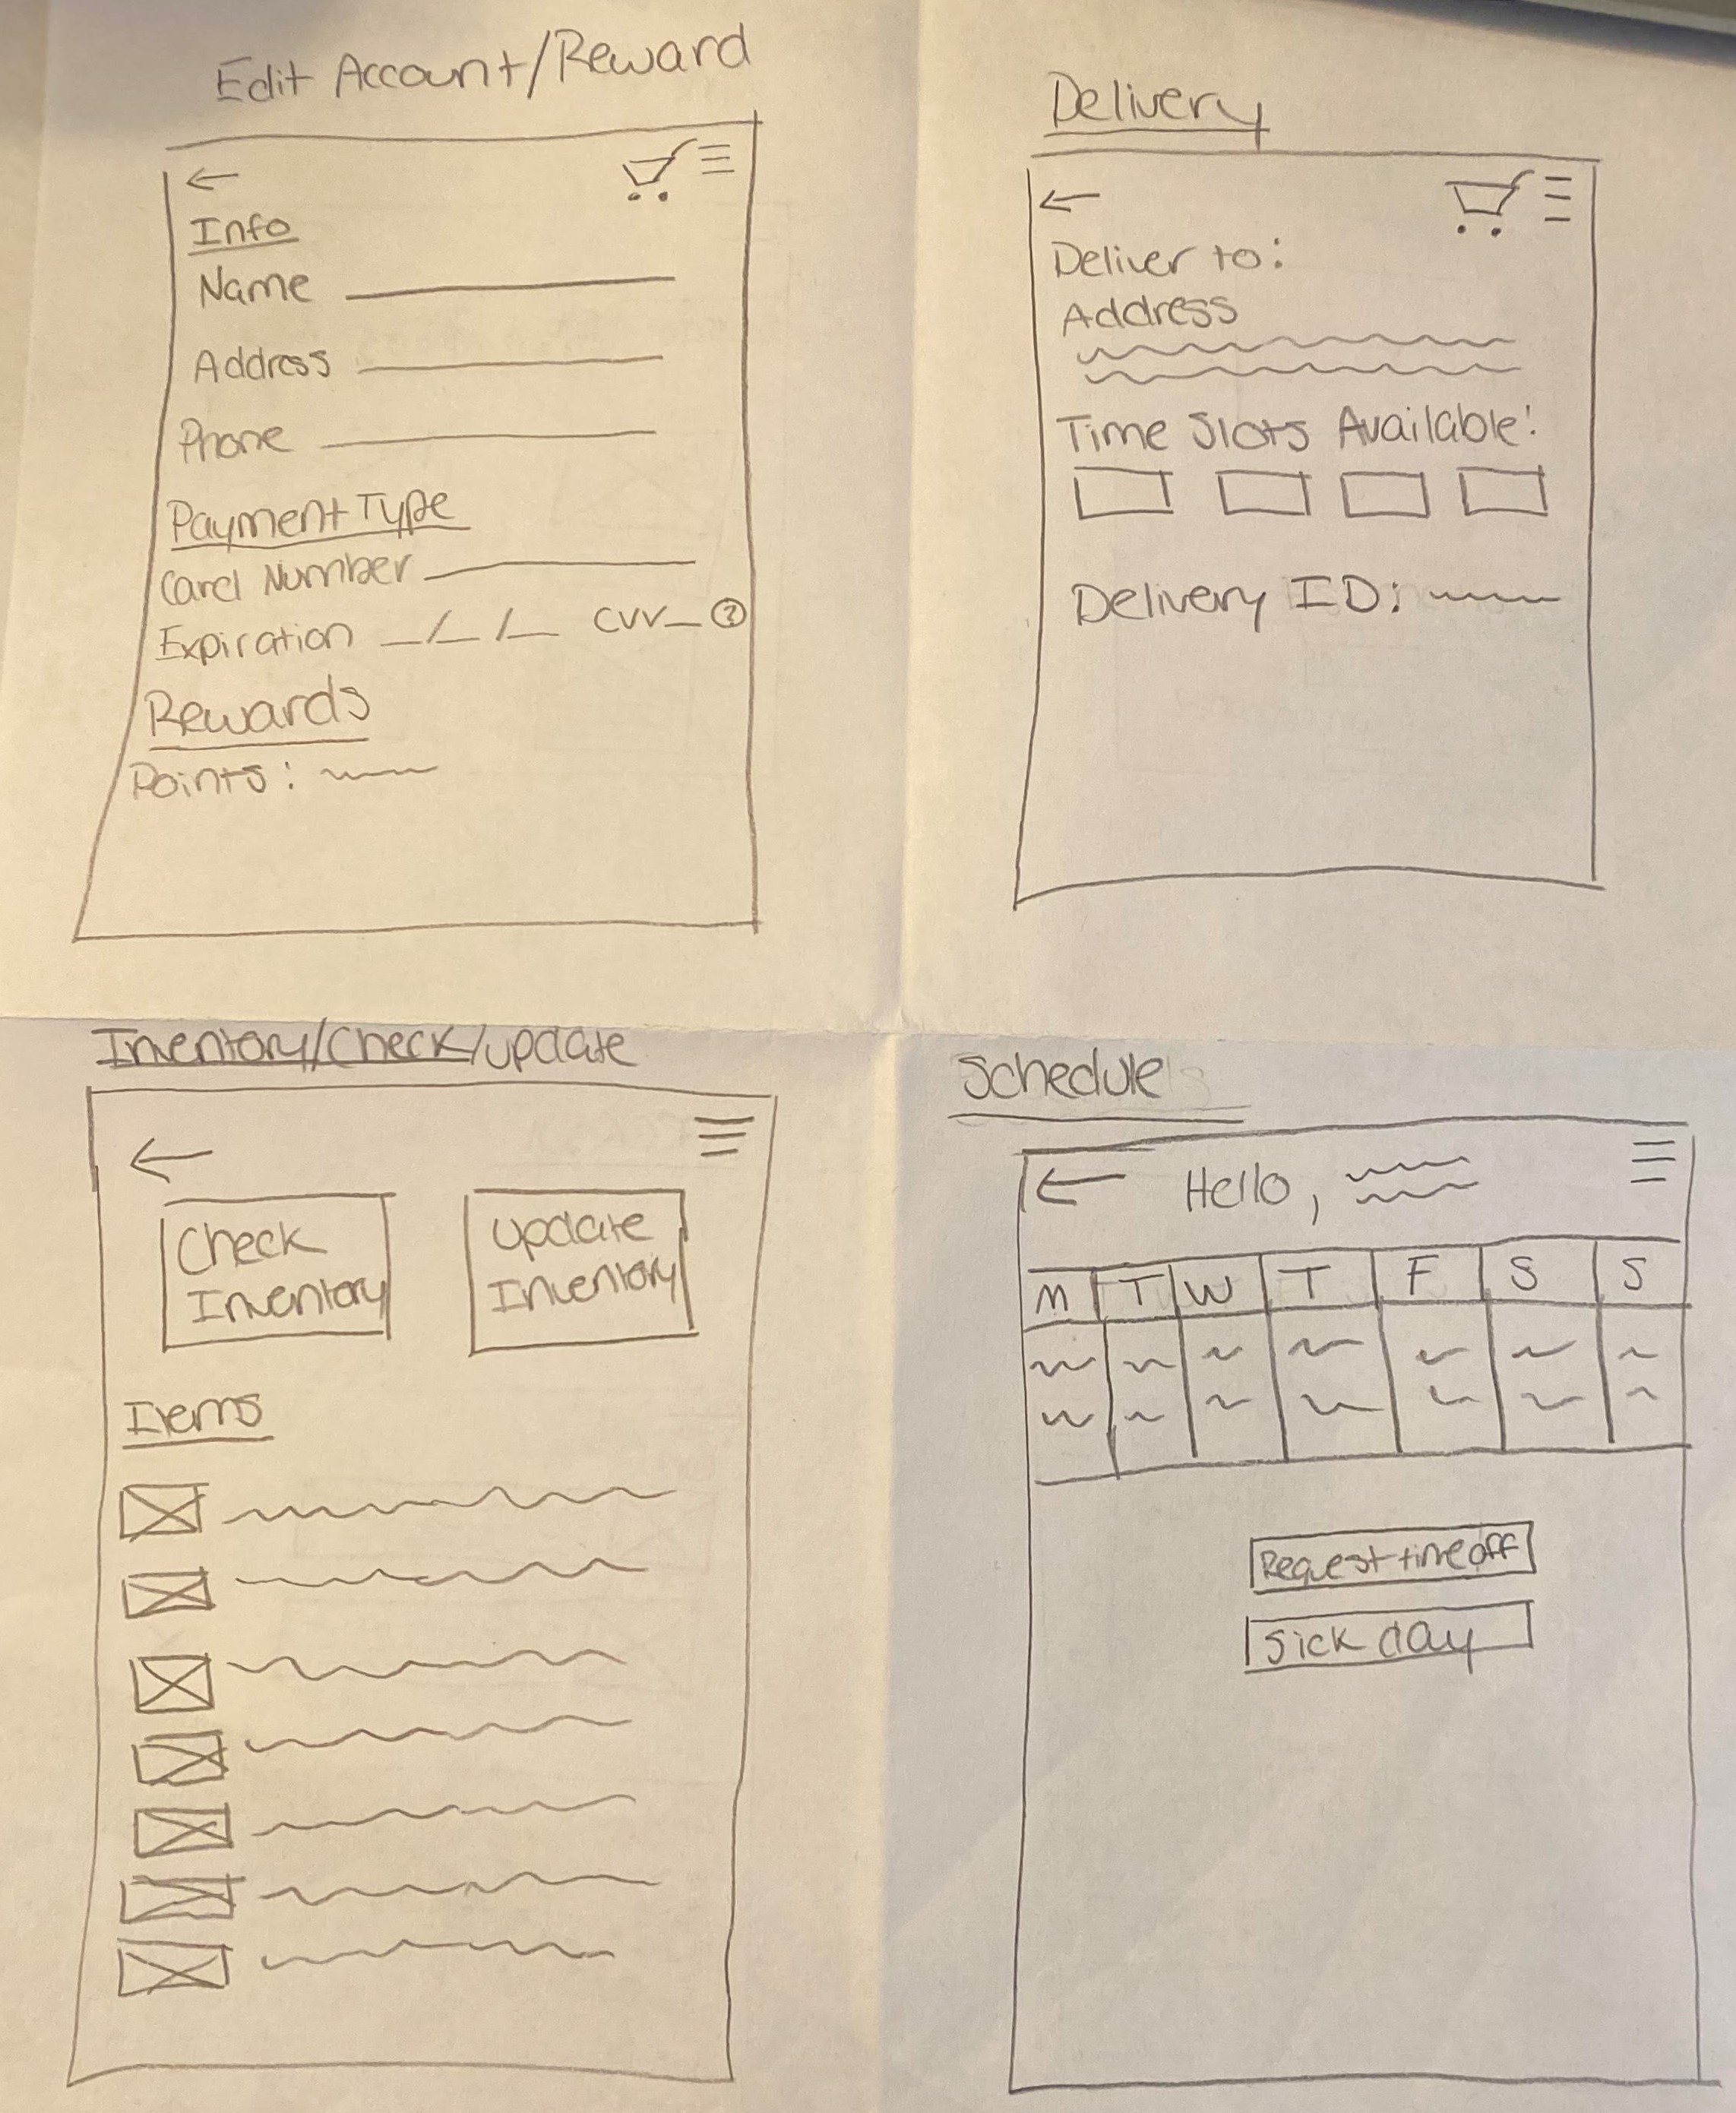 Edit Account/Reward
Info
Name
Address
Phone
Payment Type
Card Number
Expiration _/_/_ CVV_ ?
Rewards
Points:
Delivery
Deliver to:
Address
Time Slots Available:
Delivery ID:
Inventory/Check/update
Check
Inventory
Update
Inventory
Items
Schedule
Hello,
M T W T F S S
Request time off
Sick day